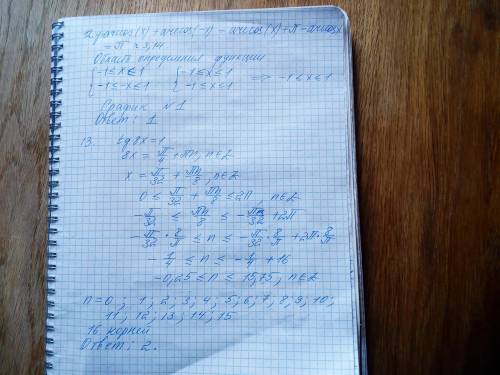 12 y=arccos(x)+arccos(-x) = arccos(x)+π-arccosx
= π ≈ 3,14
Область определения функции
{-1≤x≤1 {-1≤x≤1 => -1≤x≤1
{-1≤-x≤1 {-1≤x≤1
График №1
Ответ: 1.
13. tg8x=1
8x = π/4 + πn, n∈Z
x = π/32 + πn/8, n∈Z
0 ≤ π/32 + πn/8 ≤ 2π, n∈Z
-π/32 ≤ πn/8 ≤ -π/32 + 2π
-π/32 · 8/π ≤ n ≤ -π/32 · 8/π + 2π · 8/π
-1/4 ≤ n ≤ -1/4 + 16
-0,25 ≤ n ≤ 15,75, n∈Z
n=0; 1; 2; 3; 4; 5; 6; 7; 8; 9; 10;
11; 12; 13; 14; 15
16 корней
Ответ: 2.